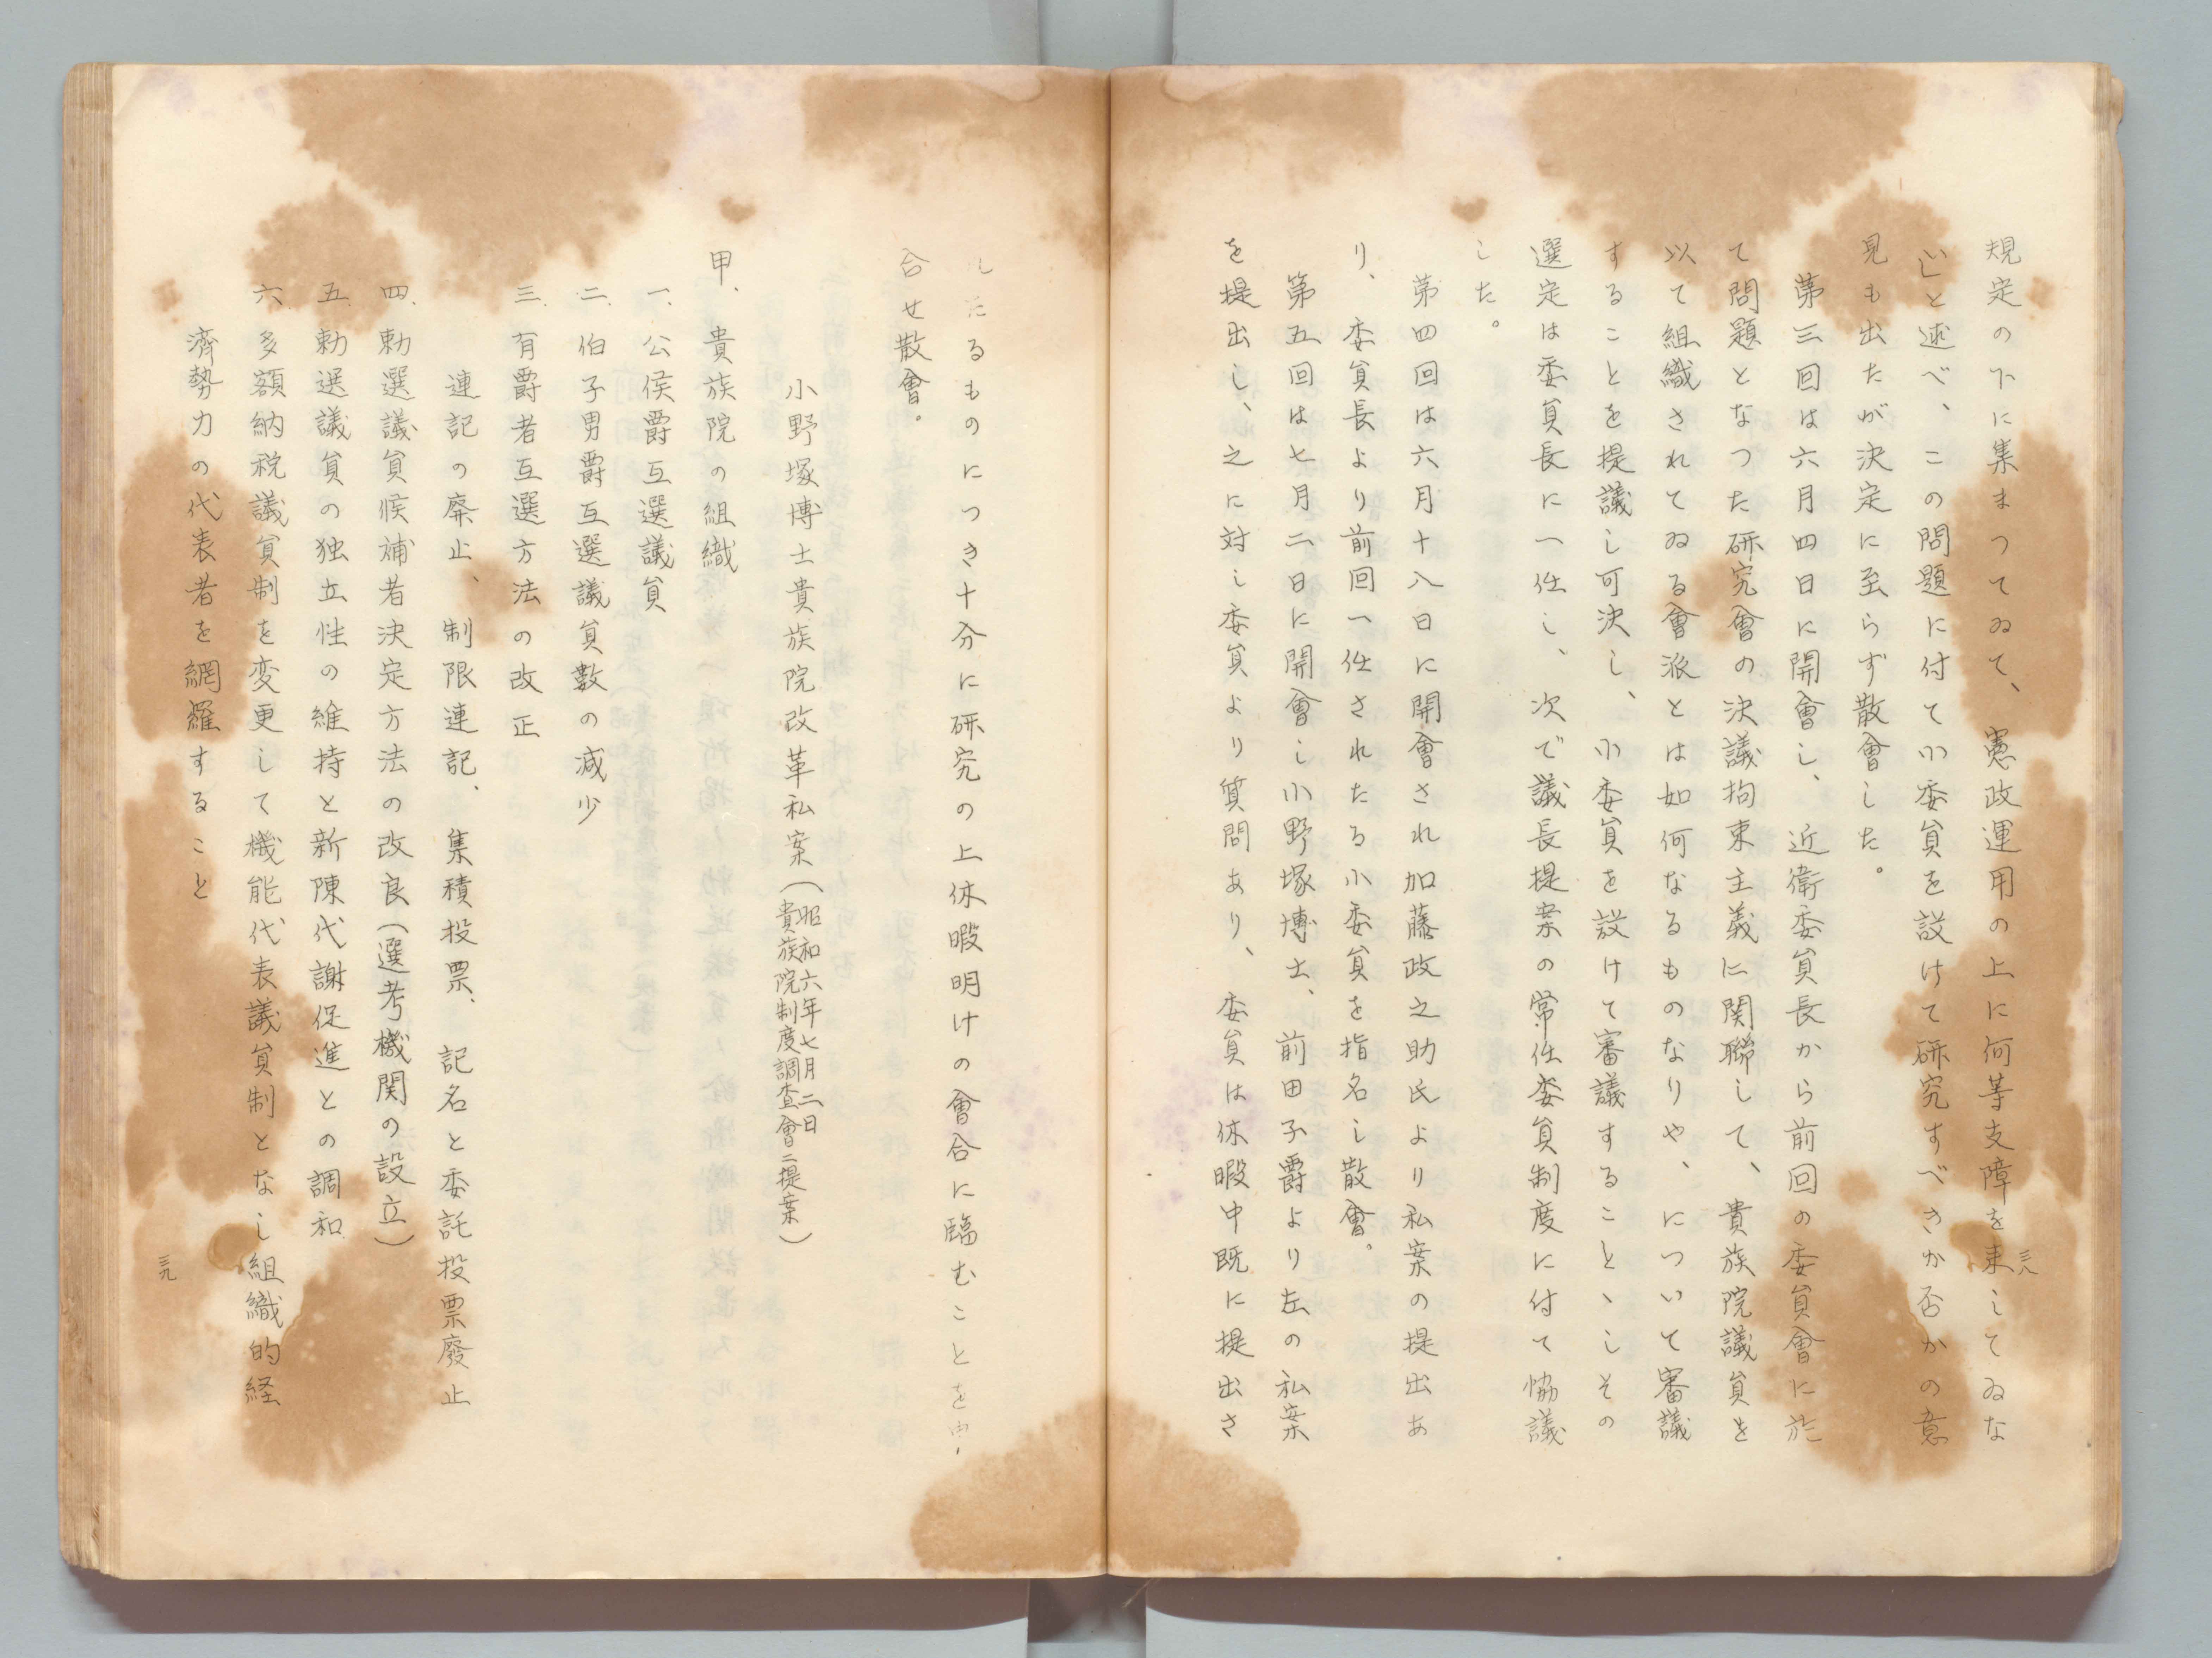 規定の下に集まつてゐて、憲政運用の上に何等支障を来してゐな
い」と述べ、この問題に付て小委員を設けて研究すべきか否かの意
見も出たが決定に至らず散會した。
第三回は六月四日に開會し、近衛委員長から前回の委員會に於
て問題となつた研究會の決議拘束主義に関聯して、貴族院議員を
以て組織されてゐる會派とは如何なるものなりや、について審議
することを提議し可決し、小委員を設けて審議することゝしその
選定は委員長に一任し、次で議長提案の常任委員制度に付て協議
した。
第四回は六月十八日に開會され加藤政之助氏より私案の提出あ
り、委員長より前回一任されたる小委員を指名し散會。
第五回は七月二日に開會し小野塚博士、前田子爵より左の私案
を提出し、之に対し委員より質問あり、委員は休暇中既に提出さ
三八
れたるものにつき十分に研究の上休暇明けの會合に臨むことを申
合せ散會。
小野塚博士貴族院改革私案(昭和六年七月二日
貴族院制度調査會ニ提案)
甲、貴族院の組織
一、公侯爵互選議員
二、伯子男爵互選議員数の減少
三、有爵者互選方法の改正
連記の廃止、制限連記、集積投票、記名と委託投票廢止
四、勅選議員候補者決定方法の改良(選考機関の設立)
五、勅選議員の独立性の維持と新陳代謝促進との調和
六、多額納税議員制を変更して機能代表議員制となし組織的経
済勢力の代表者を網羅すること
三九